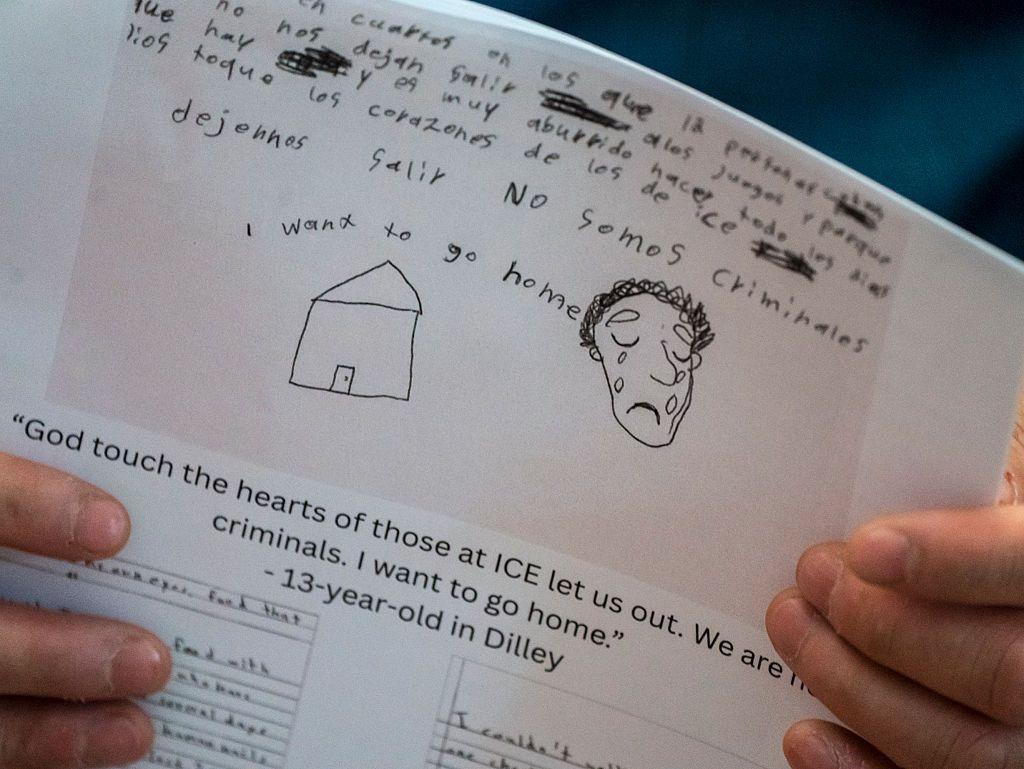 en cuartos en los que 12 personas
que no nos dejan salir alos juegos y porque
hay y es muy aburrido hacer todo los dias
Dios toque los corazones de los de ice
dejennos salir NO somos criminales
I want to go home
“God touch the hearts of those at ICE let us out. We are
criminals. I want to go home.”
- 13-year-old in Dilley
food that
food with
several days
human
I couldn't
one